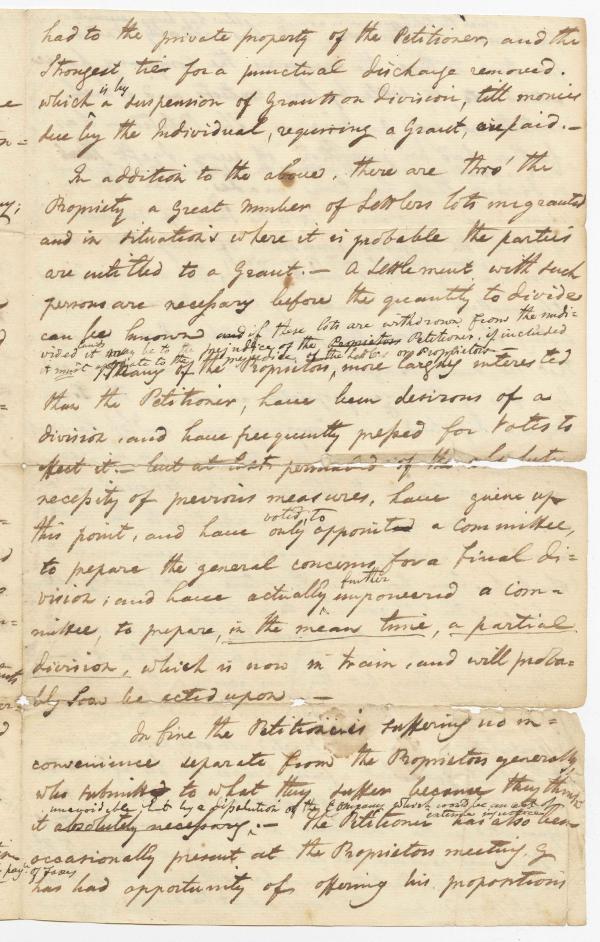 had to the private property of the Petitioner, and the
strongest ties for a punctual discharge removed.
which is by suspension of Grants on division, till monies
due by the Individual, requiring a Grant, is paid.—
In addition to the above, there are thro' the
Propriety a great number of Settlers lots ungranted
and in situations where it is probable the parties
are intitled to a Grant.— A Settlement with such
persons are necessary before the quantity to divide
can be known and if these lots are withdrawn from the undi-
vided lands it may be to the prejudice of the Proprietors Petitioner, if included
it must operate to the prejudice of the Settlers or Proprietors
Many of the Proprietors, more largely interested
than the Petitioner, have been desirous of a
division, and have frequently pressed for Votes to
effect it.— but at last persuaded of the absolute
necessity of previous measures, have given up
this point, and have only voted to appoint a Committee,
to prepare the general concerns for a final di=
vision; and have actually further impowered a Com=
mittee, to prepare, in the mean time, a partial
division, which is now in train, and will proba=
bly soon be acted upon —
In fine the Petitioner is suffering no in=
convenience separate from the Proprietors generally
who submitted to what they suffer because they think
unavoidable but by a dissolution of the Company which would be an act of
extreme injustice
it absolutely necessary.— The Petitioner has also been
occasionally present at the Proprietors meeting &
has had opportunity of offering his propositions
pay.t of Taxes